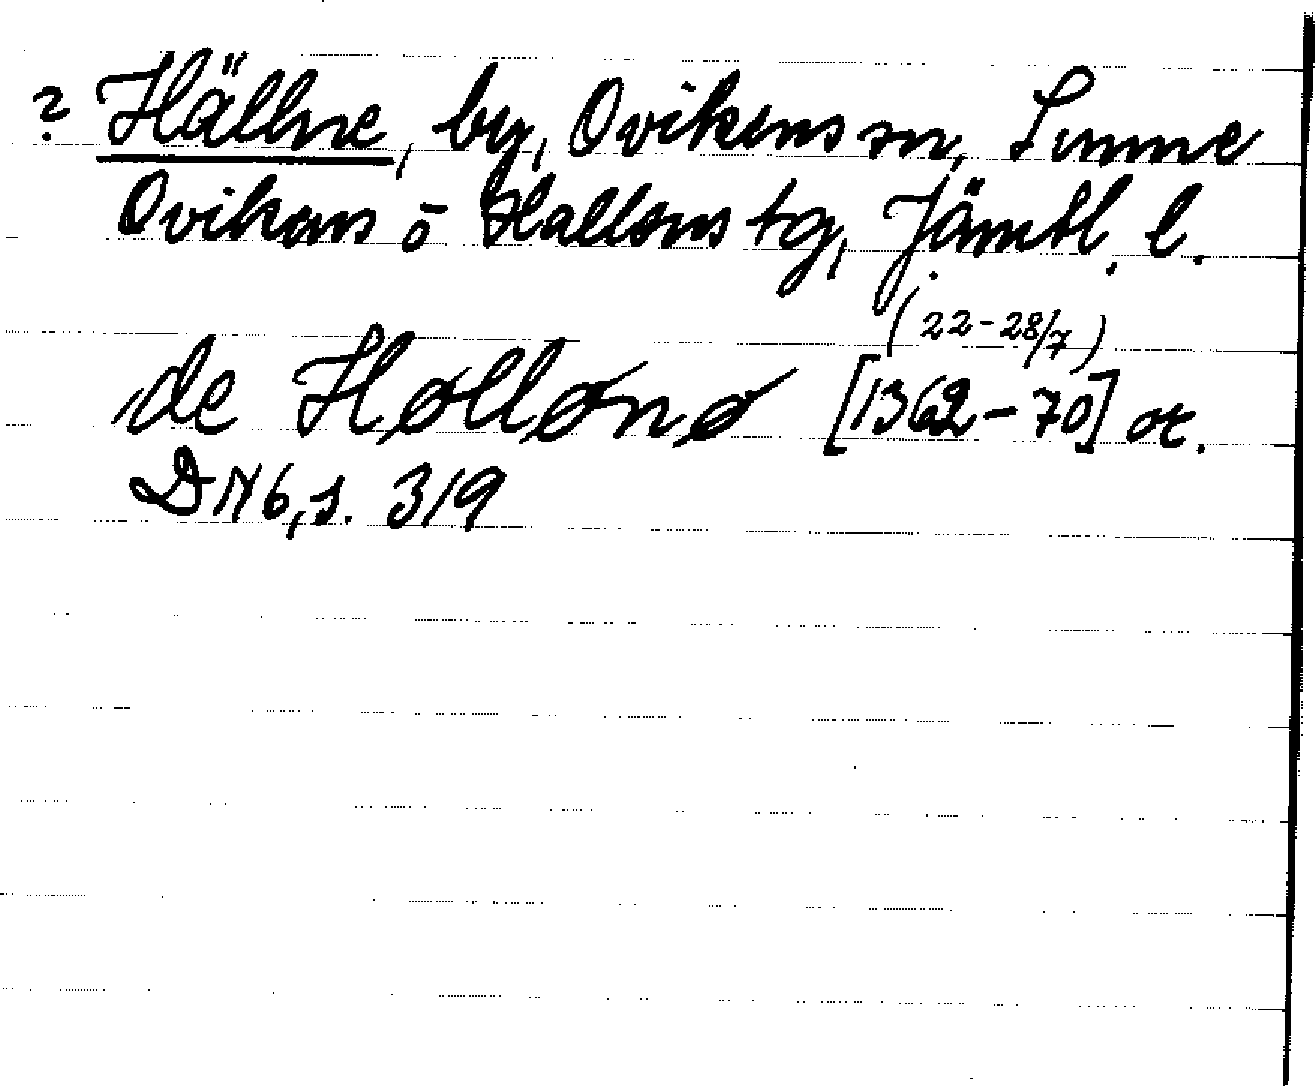 ? Hällne, by, Ovikens sn, Sunne
Ovikens o Hallens tg, Jämtl. l.
(22-28/7)
de Høllønø [1362-70] or.
DN 6, s. 319